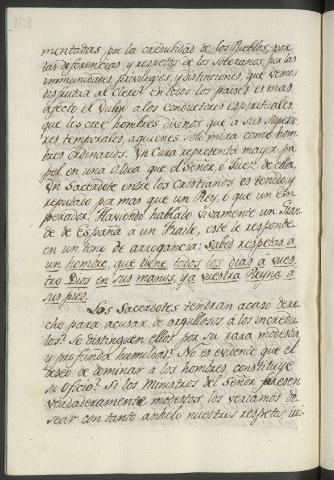 mentadas por la credulidad de los Pueblos, por
las deferencias y respetos de los Soberanos, por las
immunidades, privilegios, y distinciones, que vemos
disfrutar al Clero? En todos los países es mas
afecto el Vulgo à los conductores espirituales,
que los cree hombres divinos que à sus Superio-
res temporales, aquienes solo mira como hom-
bres ordinarios. Un Cura representa mayor pa-
pel en una aldea que el Señor, ó Juez de ella.
Un Sacerdote entre los cristianos es tenido y
reputado por mas que un Rey, ó que un Em-
perador. Haviendo hablado vivamente un Gran-
de de España à un Fraile, este le responde
en un tono de arrogancia: Sabed respetar à
un hombre, que tiene todos los dias à vues-
tro Dios en sus manos, y à vuestra Reyna à
sus pies.
Los Sacerdotes tendran acaso dere-
cho para acusar de orgullosos à los incredu-
los? Se distinguen ellos por su rara modestia,
y profunda humildad? No es evidente que el
deseo de dominar à los hombres constituye
su oficio? Si los Ministros del Señor fuesen
verdaderamente modestos, los veriamos de-
sear con tanto anhelo nuestros respetos, in-